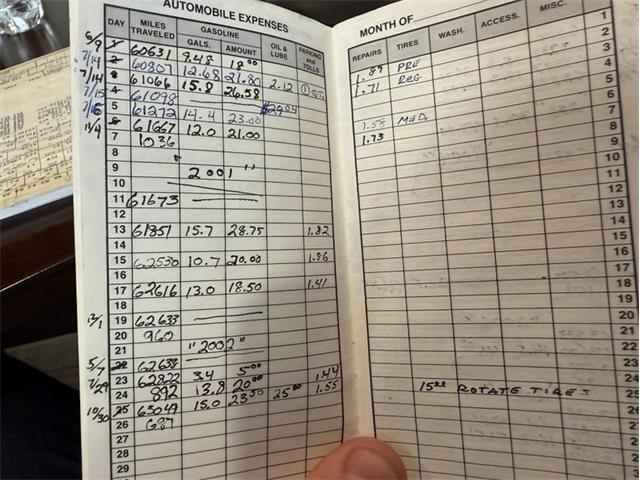 AUTOMOBILE EXPENSES
DAY MILES TRAVELED GASOLINE GALS. AMOUNT OIL & LUBE PARKING and TOLLS
6/9 1 60631 9.48 18.00
7/14 2 60807 12.68 21.80 2.12
7/14 3 61066 15.8 26.58
7/15 4 61098
5 $29.04
7/15 61272 14.4 23.00
11/4 6 61667 12.0 21.00
7 1036
8
9 "2001"
10
11 61673
12
13 61851 15.7 28.75 1.82
14
15 62530 10.7 20.00 1.86
16
17 62616 13.0 18.50 1.41
18
12/1 19 62633
20 960
21 "2002"
5/7 22 62638
23 62822 3.4 5.00 1.44
7/29 24 892 13.8 20.00 1.55
10/30 25 63049 15.0 23.50 25.00
26 687
27
28
29
MONTH OF
REPAIRS TIRES WASH. ACCESS. MISC.
1
2
3
1.87 PRE 4
1.71 REG 5
6
7
1.58 MED 8
1.73 9
10
11
12
13
14
15
16
17
18
19
20
21
22
23
24
15.00 ROTATE TIRES 25
26
27
28